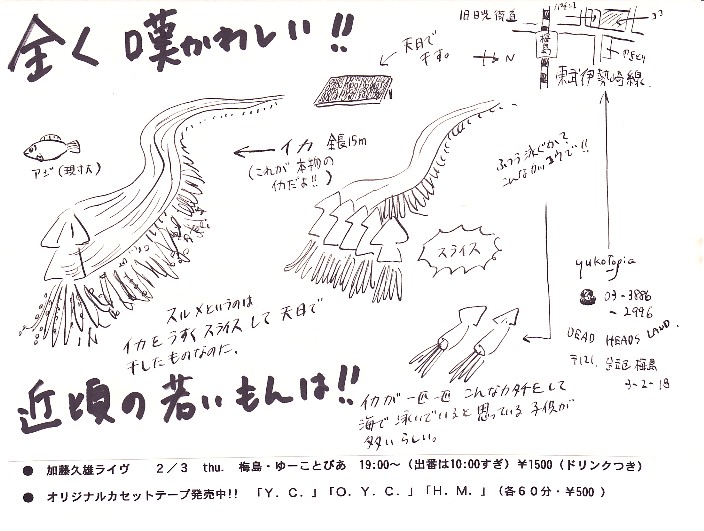 全く嘆かわしい!!
旧日光街道
梅島
東武伊勢崎線
N
天日で
干す。
アジ(現寸大)
イカ 全長15m
(これが本物の
イカだよ!!)
スライス
スルメというのは
イカをうすくスライスして天日で
干したものなのに、
yukotopia
03-3886
-2996
DEAD HEADS LAND.
〒121 足立区梅島
3-2-18
近頃の若いもんは!!
イカが一匹一匹こんなカタチをして
海で泳いでいると思っている子供が
多いらしい。
● 加藤久雄ライヴ 2/3 thu. 梅島・ゆーことぴあ 19:00~(出番は10:00すぎ)¥1500(ドリンクつき)
● オリジナルカセットテープ発売中!! 「Y.C.」「O.Y.C.」「H.M.」(各60分・¥500)